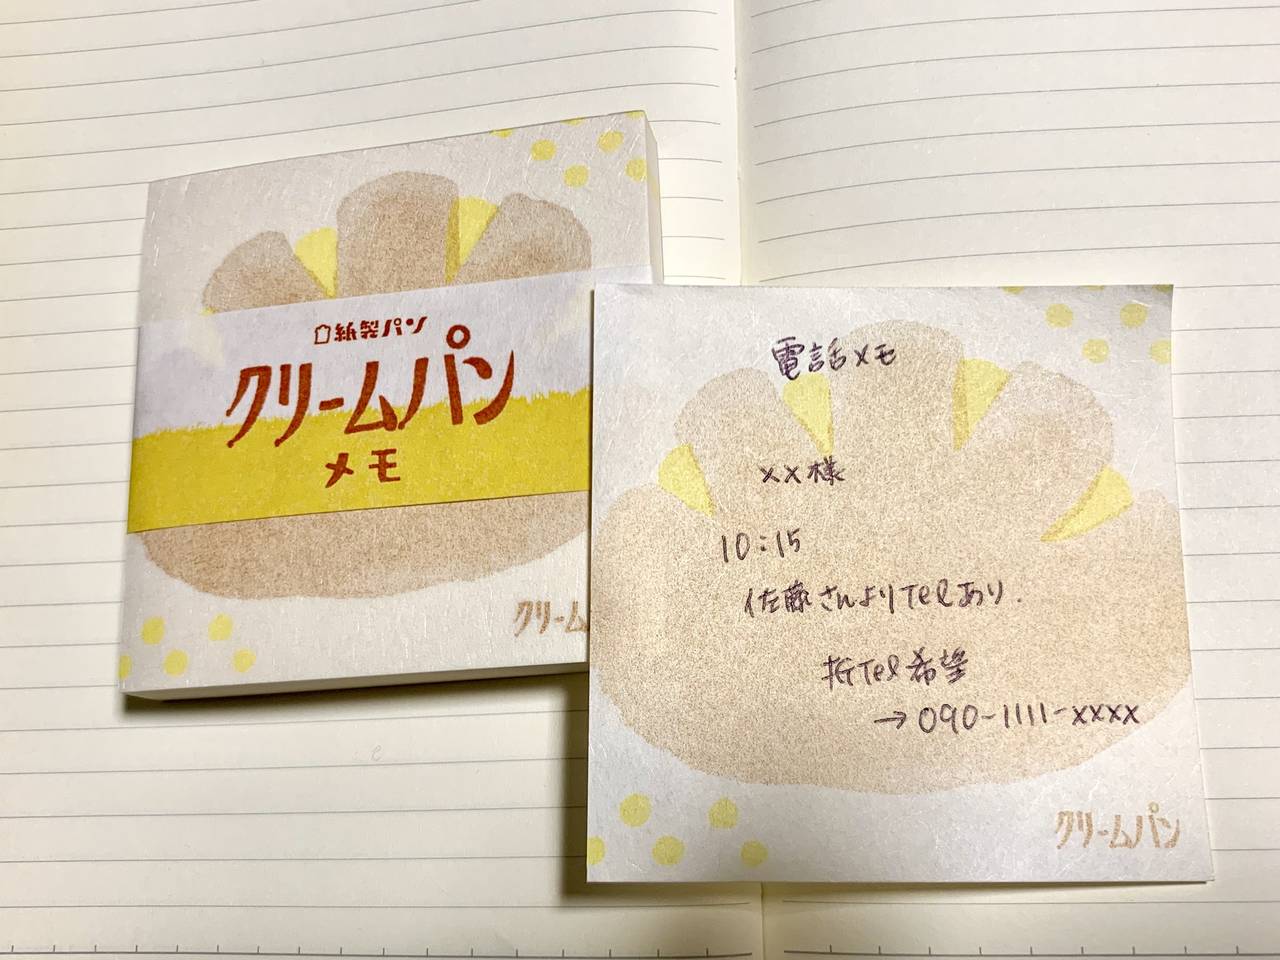 紙製パン
クリームパン
メモ
クリーム
電話メモ
××様
10:15
佐藤さんよりTelあり.
折Tel希望
→090-1111-××××
クリームパン